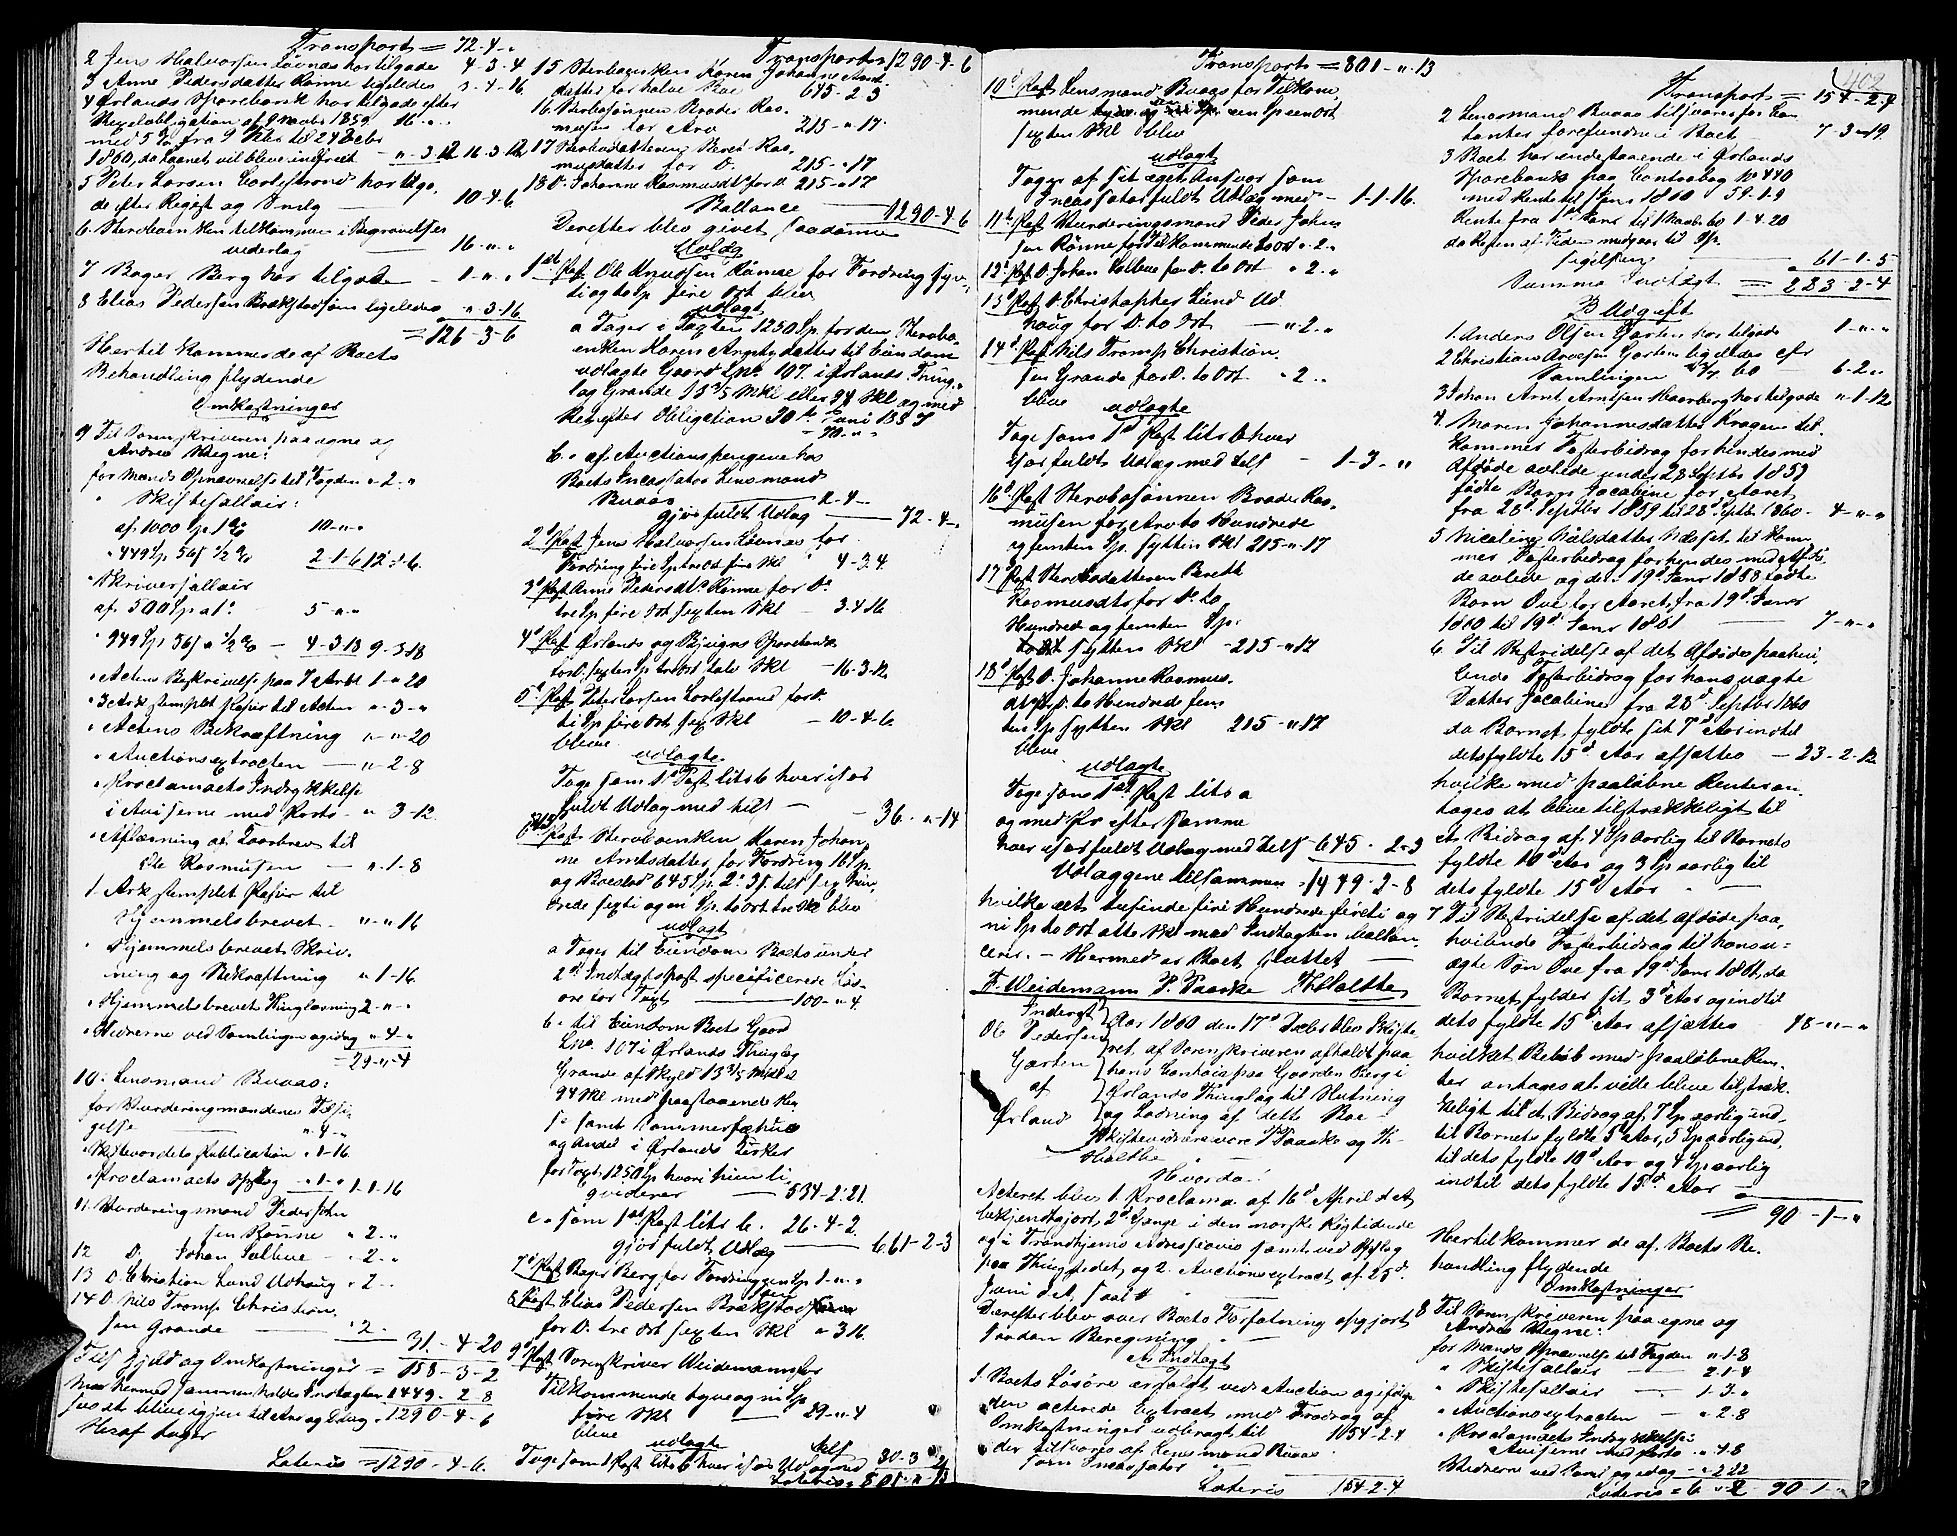 Transport = 72-4-"
2 Jens Halvorsen Løvnæs har tilgode 4-3-4
3 Anne Pedersdatter Rønne ligeledes 3-4-16
4 Ørlands Sparebank har tilgode efter
obligation af 9 1859 16-"-"
med 5 % fra 9 til 24 Debr
1860, da Laanet vil blive indfriet "-3-12 16-3-12
5 Peter Larsen har tilgo-
de efter Regist og 10-4-6
6. Sterboenken tilkommer i Begravelses
vederlag 16-"-"
7 Bager Berg har tilgode 1-"-"
8 Elias Pedersen Brækstad ligeledes "-3-16
= 126-3-6
Hertil kommer de af Boets
Behandling flydende
Omkostninger
9 Til Sorenskriveren paa egne og
Andres Vegne:
for Mænds Opnævnelse til Fogden "-2-"
" Skiftesallair:
af 1000 Sp 1 % 10-"-"
" 449 Sp 56 s 1/2 % 2-1-6 12-1-6.
" Skriversallair
af 500 Sp a 1 5-"-"
" 949 Sp 56 s a 1/2 % - 4-3-18 9-3-18
" Actens Beskrivelse paa 7 Ark 1-"-20
" 3 Ark stemplet Papir til Acten "-3-"
" Actens Bekræftning "-"-20
" Auctionsextracten - "-2-8
" Proclamaets Indrykkelse
i Aviserne med Porto "-3-12
" Aflæsning af til
Ole Rasmusen - "-1-8
1. Ark stemplet Papir til
Hjemmelsbrevet. "-"-16
" Hjemmelsbrevets Skriv-
ning og Bekræftning "-1-16.
" Hjemmelsbrevets Thinglæsning 2-"-"
" Vidnerne ved Samlingen "-4-"
= 29-"-4
10. Lensmand Buaas:
for Vurderingsmændenes Tilsi-
gelse "-4-"
" Skifterettens Publication "-1-16
" Proclamaets Opslag "-1-" 1-1-16
11. Vurderingsmand Peder John
sen Rønne "-2-"
12 D. Johan "-2-"
13 D. Christian Lund Udhaug "-2-"
14 D. Nils Tromp Christian-
sen Grande "-2- 31-4-20
Tils Gjæld og Omkostninger = 158-3-2
Naar hermed sammenholdes Indtægten 1449-2-8
saa at blive igjen til Arv og Udlæg 1290-4-6
Heraf tager
Lateris = 1290-4-6.
Transport = 1290-4-6
15 Sterboenken Karen Johanne Arnts
datter for halve Boe 645-2-3
16. Sterbosønnen Brader Ras-
musen for Arv 215-"-17
17 Sterbodatteren Bereth Ras-
musdatter for D. 215-"-17
18 D. Johanne Rasmusdtr for D. 215-"-17
Ballance 1290-4-6
Derefter blev givet saadanne
Udlæg
1ste Post Ole Knudsen Rønne for Fordring syv-
tiogto Sp fire Ort blev
udlagt
a Tager i Taxten 1250 Sp for den Sterbo-
enken Karen Arntsdatter til Eiendom
udlagte Gaard Lno 107 i Ørlands Thing-
lag Grande 13 3/5 Mkl eller 94 Skl og med
Hest efter Obligation 30te Juni 1857
70-"-"
b. af Auctionspengene hos
Boets Incassator Lensmand
Buaas 2-4-"
gjør fuldt Udlæg 72-4-"
2den Post Jens Halvorsen Løvnæs for
Fordring fire Sp tre Ort fire Skl 4-3-4
3die Post Anne Pedersdtr Rønne for D.
tre Sp fire Ort sexten Skl - 3-4-16
4de Post Ørlands og Bjugns Sparebank
for D. sexten Sp tre Ort tolv Skl - 16-3-12
5te Post Peter Larsen for D.
ti Sp fire Ort sex Skl - 10-4-6.
bleve
udlagte.
Tage som 1ste Post lits b hver især
fuldt Udlæg med tils - 36-"-14
6te Post Sterboenken Karen Johan-
ne Arntsdatter for Fordring 16 Sp
og Boeslod 645 Sp 2 3 s tils sex Hun-
drede sexti og en Sp to Ort tre Skl blev
udlagt
a Tager til Eiendom Boets under
2den Indtægtspost specificerede Løs-
øre for Taxt 100-"-4.
b. til Eiendom Boets Gaard
Lno. 107 i Ørlands Thinglag
Grande af Skyld 13 3/5 Mkl
94 Skl med paastaaende Hu-
se samt
og Andel i Ørlands Kirker
for Taxt 1250 Sp hvori hun li-
qviderer 534-2-21
c. som 1ste Post lits b. 26-4-2
gjør fuldt Udlæg 661-2-3
7de Post Bager Berg for Fordring en Sp 1-"-"
8de Post Elias Pedersen Brækstad
for D. tre Ort sexten Skl "-3-16.
9de Post Sorenskriver Weidemann for
Tilkommende tyve og ni Sp
fire Skl 29-"-4
bleve
udlagte
Tage som 1 Post lits b hver især Udlæg med tils 30-3-20
Lateris 801-"-13
Transport = 801-"-13
10de Post Lensmand Buaas for Tilkom-
mende een Sp een Ort
sexten Skl blev
udlagt
Tager af sit eget Ansvar som
Incassator fuldt Udlæg med 1-1-16.
11te Post Vurderingsmand Peder John-
sen Rønne for Tilkommende to Ort "-2-"
12. Post D. Johan for D. to Ort "-2-"
13de Post D. Christopher Lund Ud-
haug for D. to Ort - "-2-"
14de Post Nils Tromp Christian-
sen Grande for D. to Ort. "-2-"
bleve
udlagte
Tage som 1ste Post lits b hver
især fuldt Udlæg med tils - 1-3-"
16de Post Sterbosønnen Brader Ras-
musen for Arv to Hundrede
og femten Sp. sytten Skl 215-"-17
17de Post Sterbodatteren Bereth
Rasmusdtr for D. to
Hundrede og femten Sp.
sytten Skl - 215-"-17
18de Post D. Johanne Rasmus-
dtr for D. to Hundrede fem-
ten Sp sytten Skl 215-"-17
bleve
udlagte
Tage som 1ste Post lits a
og med Pr efter samme
hver især fuldt Udlæg med tils - 645-2-3
Udlæggene tilsammen = 1449-2-8
hvilke et tusinde fire Hundrede firti og
ni Sp to Ort otte Skl med Indtægten ballan-
cerer. - Hermed er Boet sluttet
F. Weidemann P. Paaske
Inderst
Ole Pedersen
Garten
af
Ørland
Aar 1860 den 17de Debr blev Skifte-
ret af Sorenskriveren afholdt paa
hans Contoir paa Gaarden Berg i
Ørlands Thinglag til Slutning
og Ladning af dette Boe -
Skiftevidner vare P Paaske og
Hvorda:
Acteret blev 1. Proclama af 16de April d. A.
bekjendtgjort 2de Gange i den norske Rigstidende
og i Trondhjems Adresseavis samt ved Opslag
paa Thingstedet, og 2. Auctionsextract af 25de
Juni d. A. saal.
Derefter blev over Boets Forfatning opgjort
saadan Beregning
A. Indtægt
1. Boets Løsøre er solgt ved Auction og ifølge
den acterede Extract med Fradrag af
Omkostninger udbragt til 154-2-4
der tilsvares af Lensmand Buaas
som Incassator
Lateris 154-2-4
402
Transport = 154-2-4
2 Lensmand Buaas tilsvarer for Con-
tanter forefundne i Boet - 7-3-19
3 Boet har indestaaende i Ørlands
Sparebank paa Contrabog No 440
med Rente til Jan 1860 59-1-9
Rente fra 1ste Janr til 60 1-4-20
da Resten af Tiden medgaar til Op-
sigelsen 61-1-5
Summa Indtægt = 223-2-4
B Udgift
1. Anders Olsen Garten har tilgode 1-"-"
2 Christian Garten ligeledes efter
Samlingen 60 6-2-"
3 Johan Arnt Arntsen har tilgode "-1-12
4. Maren Johannesdatter Kragen til-
kommer Fosterbidrag for hendes med
Afdøde avlede under 28 Septbr 1859
fødte Barn Jacobine for Aaret
fra 28de Septbr 1859 til 28de Septbr 1860 - 4-"-"
5 Nicoline Nilsdatter til kom-
mer Fosterbidrag for hendes med Afdø-
de avlede og den 19de Janr 1858 fødte
Barn Ove for Aaret, fra 19de Janr
1860 til 19de Janr 1861 7-"-"
6 Til Bestridelse af det Afdøde paahvi-
lende Fosterbidrag for hans uægte
Datter Jacobine fra 28de Septbr 1860
da Barnet fyldte sit 1ste Aar indtil
dets fyldte 15de Aar afsættes - 23-2-12
hvilke med paaløbne Renter an-
tages at blive tilstrækkeligt til
et Bidrag af 4 Sp aarlig til Barnets
fyldte 10de Aar og 3 Sp aarlig til
dets fyldte 15de Aar -
7 Til Bestridelse af det afdøde paa-
hvilende Fosterbidrag til hans u-
ægte Søn Ove fra 19de Janr 1861, da
Barnet fylder sit 3de Aar og indtil
dets fyldte 15de Aar afsættes 48-"-"
hvilket Beløb med paaløbne Ren-
ter antages at ville blive tilstræk-
keligt til et Bidrag af 7 Sp aarlig ind-
til Barnets fyldte 5de Aar, 5 Sp aarlig ind-
til dets fyldte 10de Aar og 4 Sp aarlig
indtil dets fyldte 15de Aar -
= 90-1-"
Hertil kommer de af Boets Be-
handling flydende
Omkostninger
8 Til Sorenskriveren paa egne og
Andres Vegne:
for Mænds Opnævnelse til Fogden "-1-8
" Skiftesallair 2-1-4
" Skiftesallair - 1-3-"
" Auctionsextracten - "-2-8
" Proclamaets Indrykkelse i
Aviserne med Porto "-4-8
Vidnerne ved Saml og idag - "-2-22
Lateris = 6-"-2 90-1-"